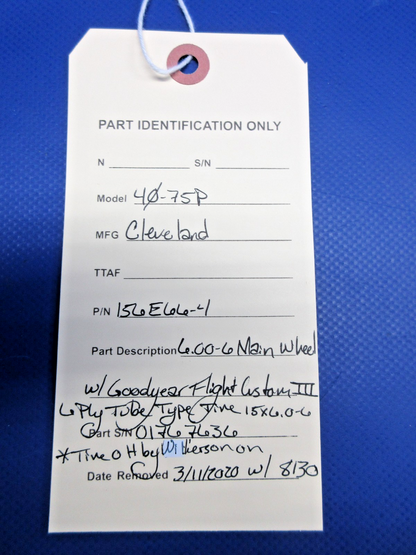 PART IDENTIFICATION ONLY
N S/N
Model 40-75P
MFG Cleveland
TTAF
P/N 156E66-4
Part Description 6.00-6 Main Wheel
w/ Goodyear Flight Custom III
6 Ply Tube Type Tire 15X6.0-6
Part S/N 01767636
* Tire OH by Wilkerson on
Date Removed 3/11/2020 w/ 8130